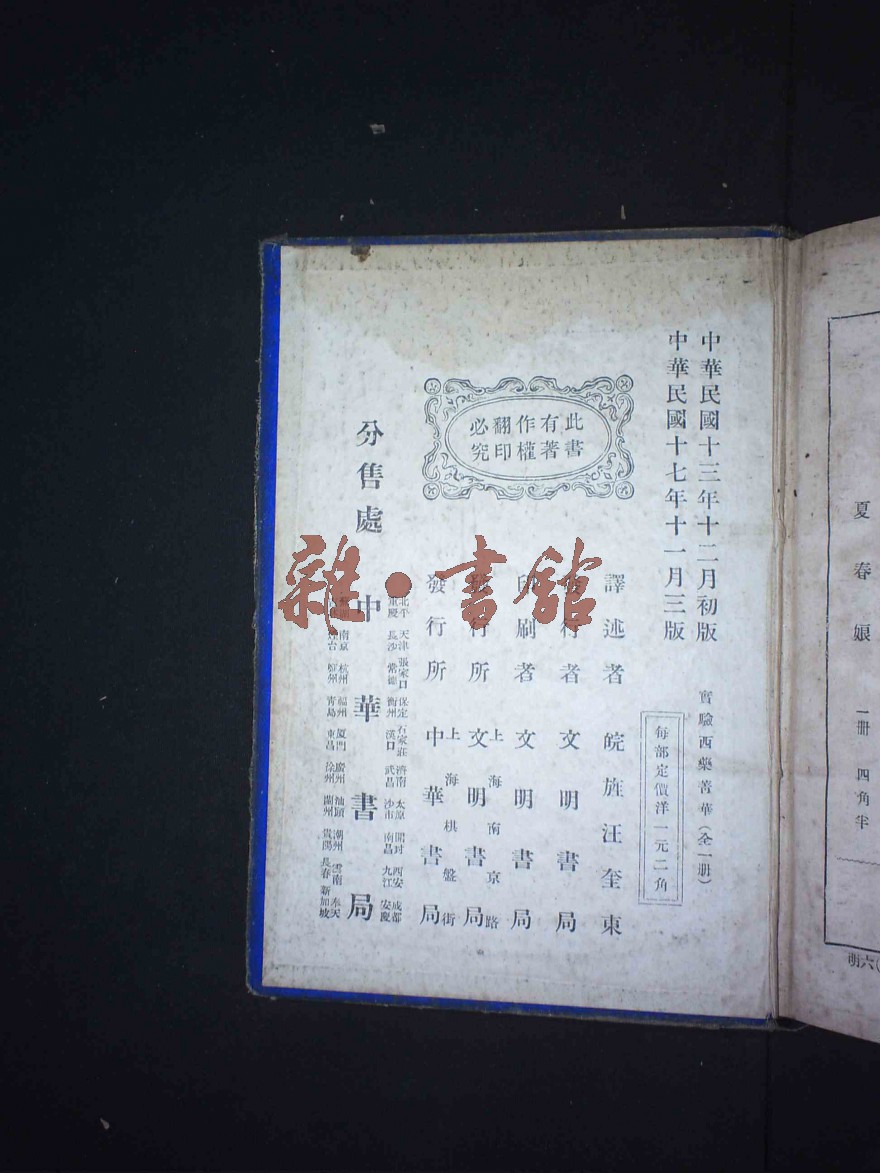 中華民國十三年十二月初版
中華民國十七年十一月三版
實驗西藥菁華(全一册)
每部定價洋一元二角
此書
有著
作權
翻印
必究
譯述者 皖旌汪奎東
發行者 文明書局
印刷者 文明書局
上海南京路
發行所 文明書局
上海棋盤街
發行所 中華書局
分售處 中華書局
北平 天津 張家口 保定 石家莊 濟南 太原 開封 西安 成都
重慶 長沙 常德 衡州 漢口 武昌 沙市 南昌 九江 安慶
南京 杭州 福州 厦門 廣州 汕頭 潮州 雲南 奉天
青島 東昌 徐州 蘭州 貴陽 長春 新加坡
雜·書館
夏春娘 一册 四角半
明(六